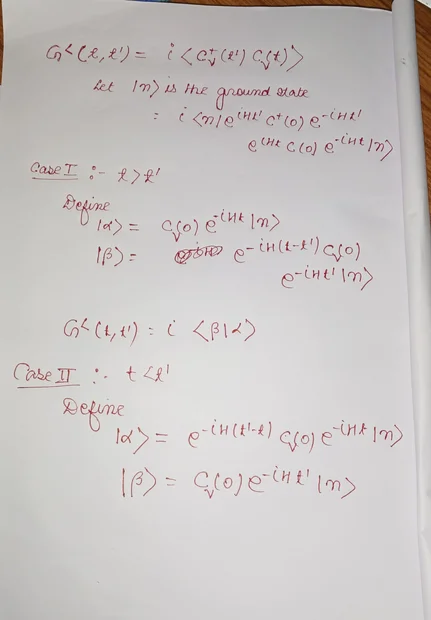 G^<(t,t') = i <C†_↓(t') C_↓(t)>
Let |n> is the ground state
= i <n|e^{iHt'} C†(0) e^{-iHt'}
e^{iHt} C(0) e^{-iHt}|n>
Case I :- t>t'
Define
|α> = C_↓(0) e^{-iHt}|n>
|β> = e^{-iH(t-t')} C_↓(0)
e^{-iHt'}|n>
G^<(t,t') = i <β|α>
Case II :- t<t'
Define
|α> = e^{-iH(t'-t)} C_↓(0) e^{-iHt}|n>
|β> = C_↓(0) e^{-iHt'}|n>